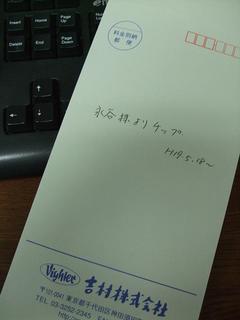 Insert
Home
Page Up
Delete
End
Page Down
料金別納
郵便
永谷様よりチップ
H19.5.18～
Vighler
吉村株式会社
〒101-0041 東京都千代田区神田須田
TEL 03-3252-2345